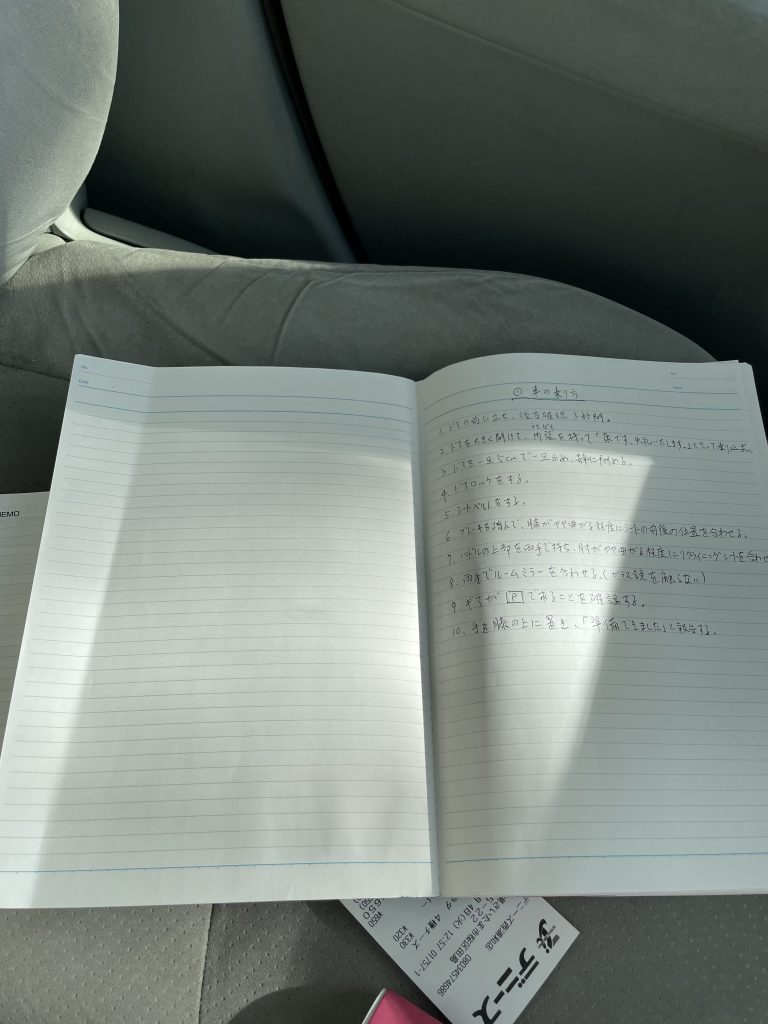 ① 車の乗り方
1. ドアの前に立ち、後方確認、3秒間。
2. ドアを大きく開けて、内張を持って「 です。失礼いたします。」と言って乗り込む。
うちばり
3. ドアを一旦5cmで一旦止め、 閉める。
4. ドアロックをする。
5. シートベルトをする。
6. ブレーキを踏んで、膝がやや曲がる程度にシートの前後の位置を合わせる。
7. ハンドルの上部を両手で持ち、肘がやや曲がる程度にリクライニングシートを合わせ
8. 両手でルームミラーを合わせる。(ガラス鏡を触らない)
9. ギアが P であることを確認する。
10. 手を膝の上に置き、「準備できました」と報告する。
No.
Date
No.
Date
MEMO
デニーズ
デニーズ西浦和店
さいたま市桜区田島
08034574686
4日(火) 12:57 01757-1
4種チーズ
¥330
¥320
¥650